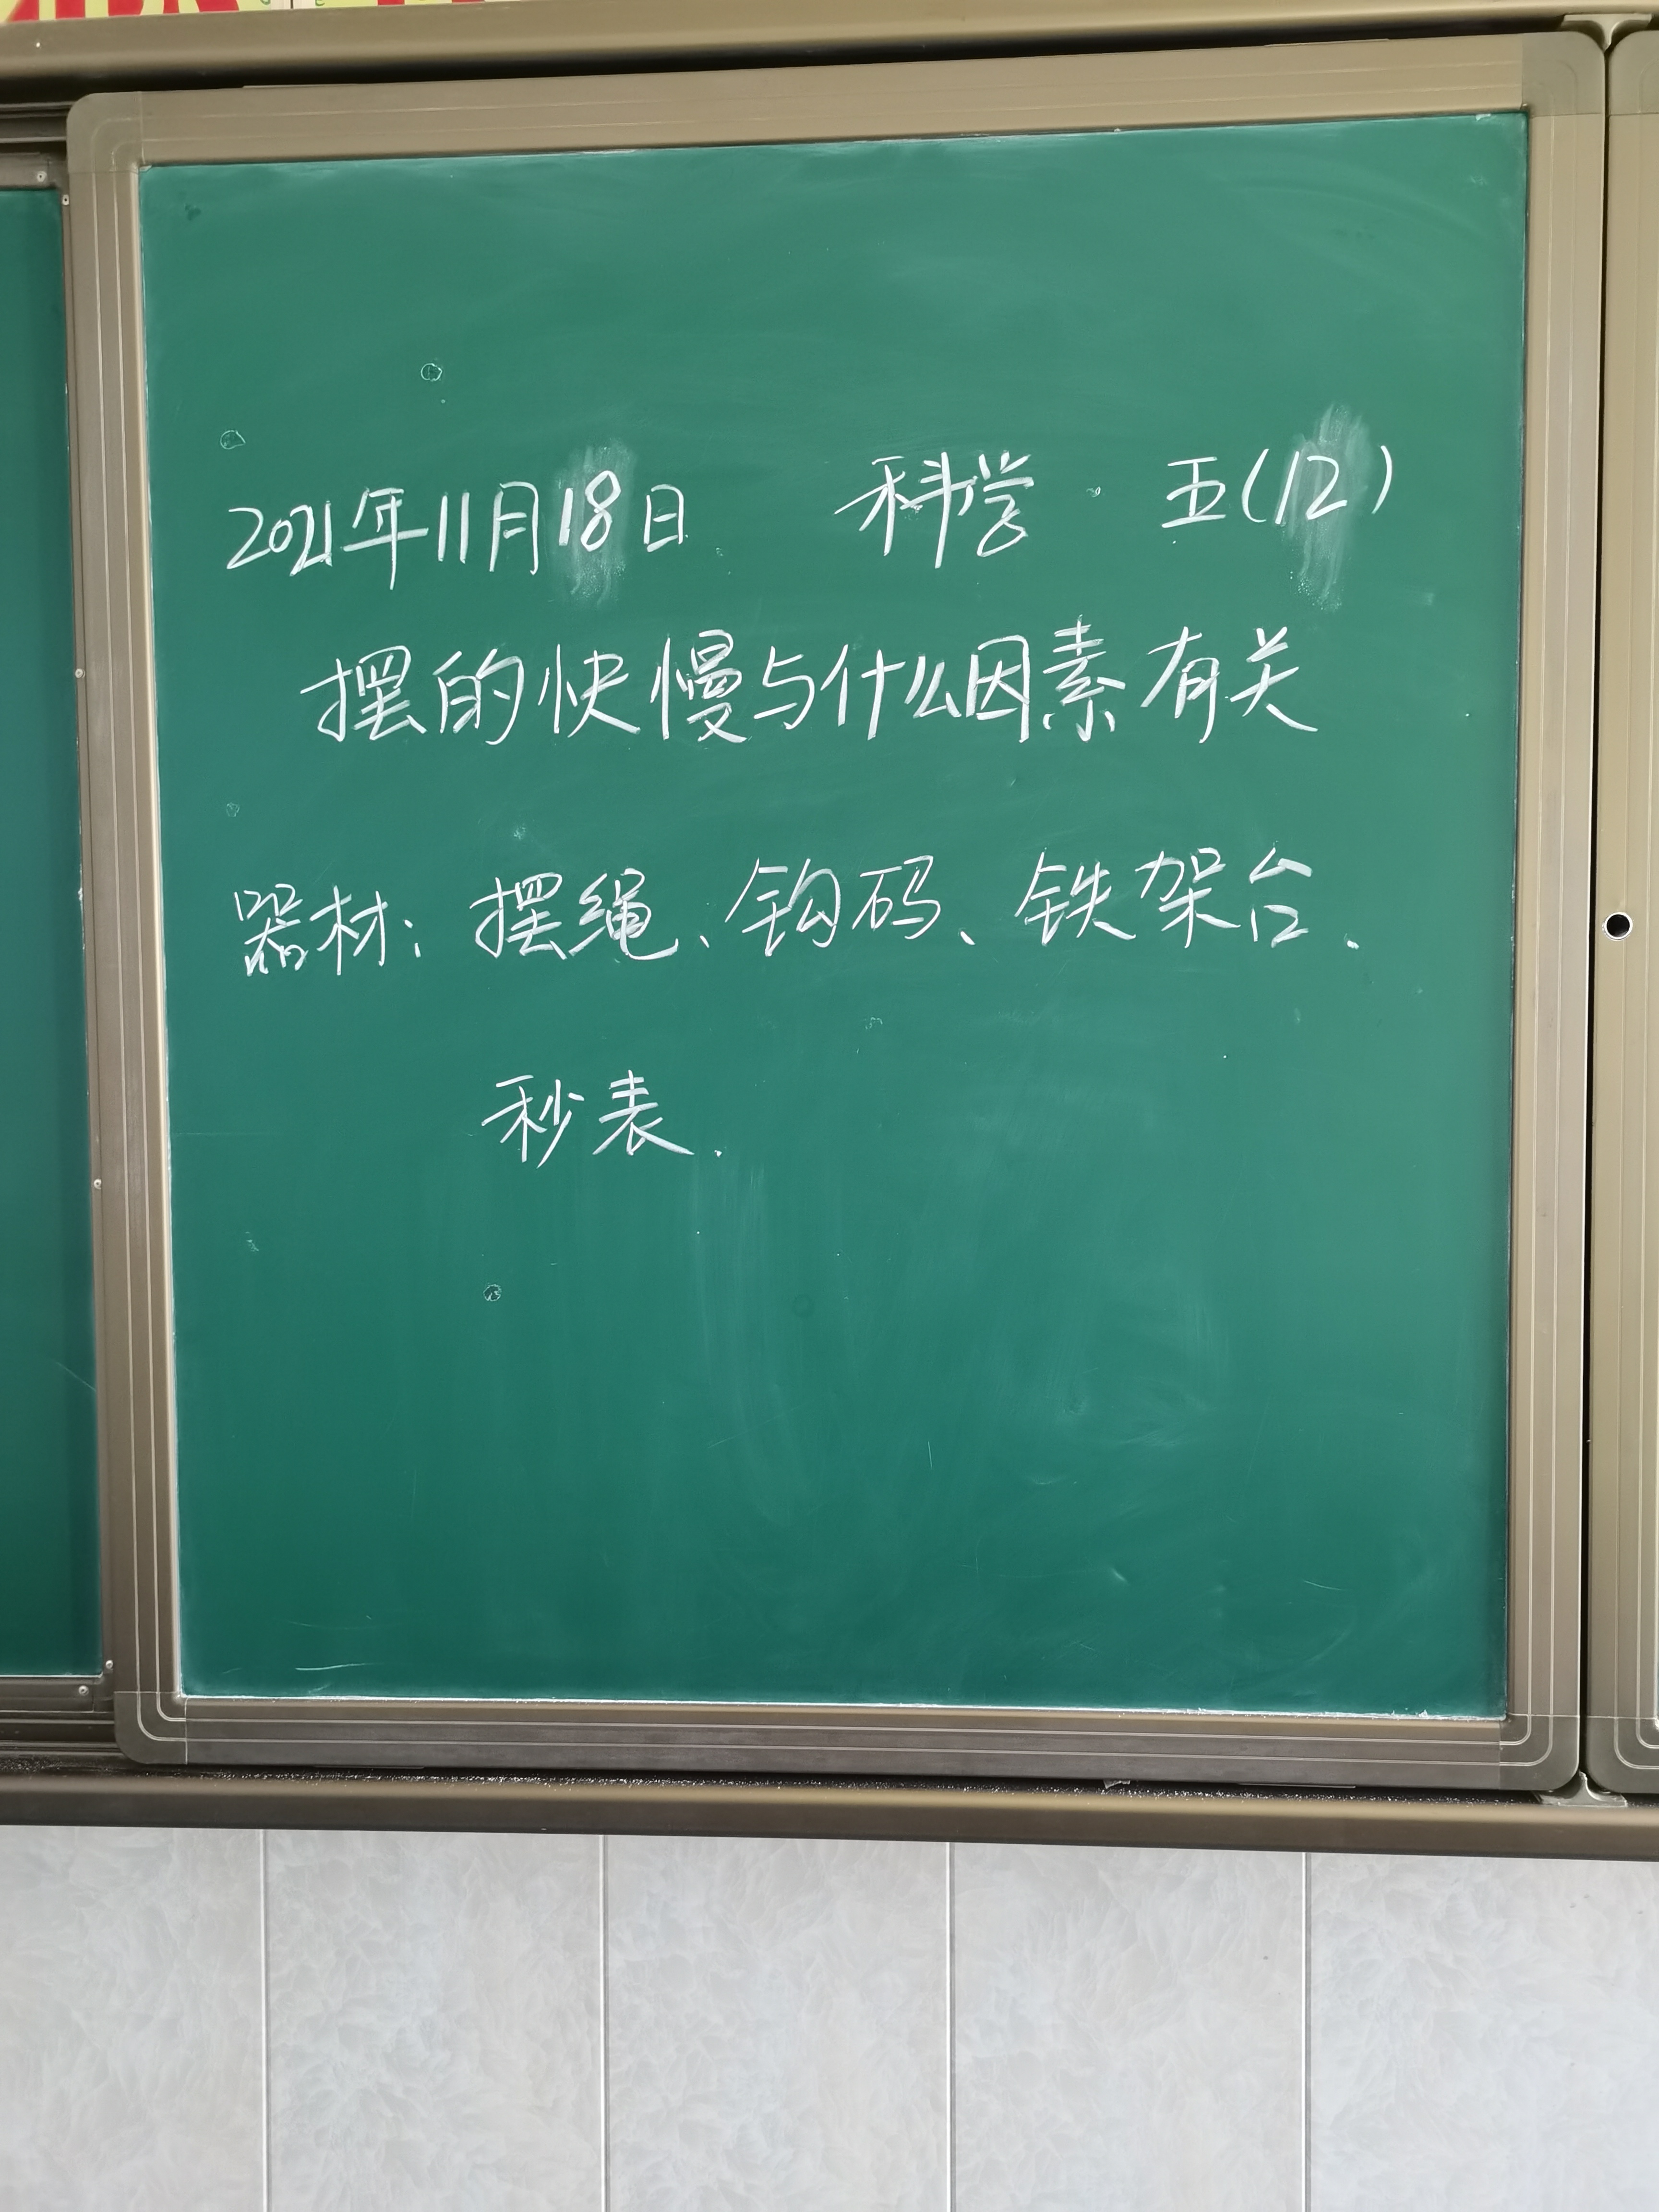 2021年11月18日 科学 五(12)
摆的快慢与什么因素有关
器材：摆绳、钩码、铁架台、
秒表.